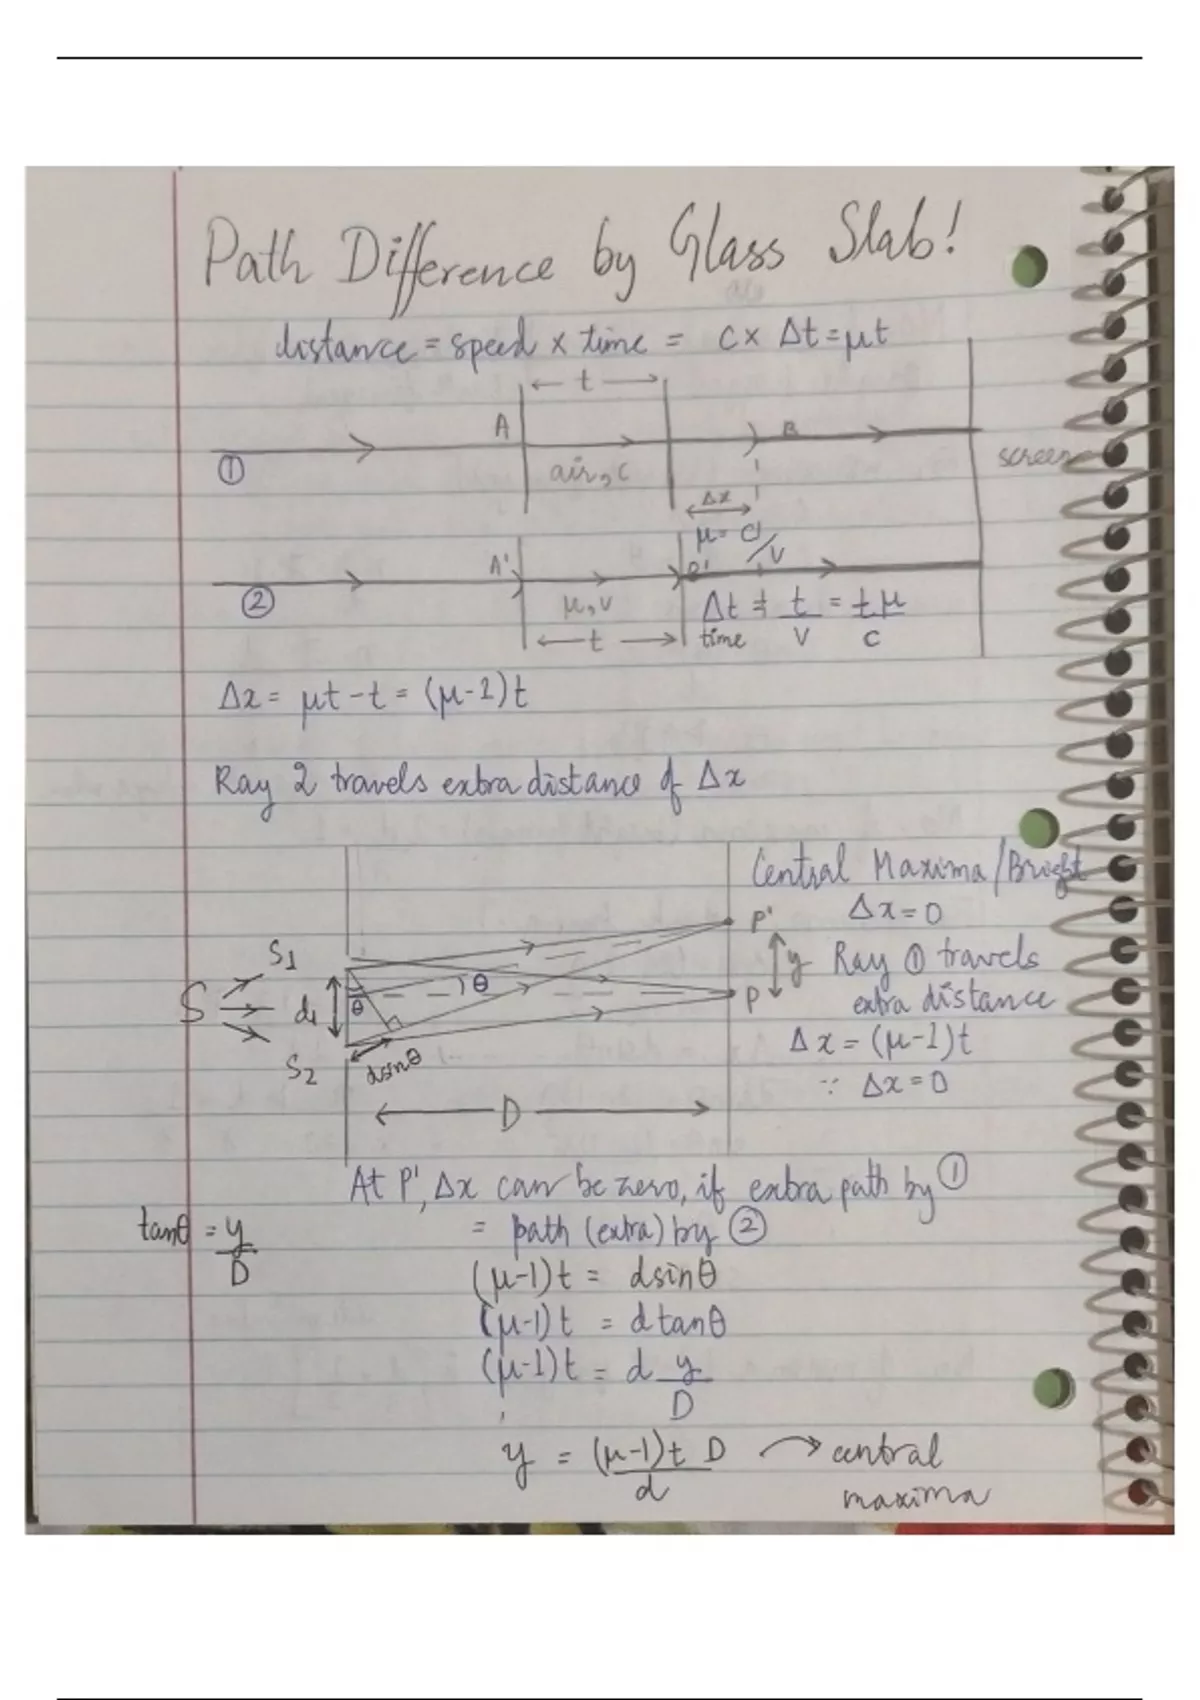 Path Difference by Glass Slab!
distance = speed x time = c x Δt = μt
← t →
A
B
①
air, c
screen
Δx
μ = c/v
A'
B'
②
μ, v
Δt = t/v = tμ/c
time
← t →
Δx = μt - t = (μ-1)t
Ray 2 travels extra distance of Δx
Central Maxima/Bright
P'
Δx = 0
S1
y
Ray ① travels
S
d
θ
θ
P
extra distance
S2
dsinθ
Δx = (μ-1)t
∵ Δx = 0
D
At P', Δx can be zero, if extra path by ①
tanθ = y/D
= path (extra) by ②
(μ-1)t = dsinθ
(μ-1)t = dtanθ
(μ-1)t = d y/D
y = (μ-1)t D/d → central
maxima